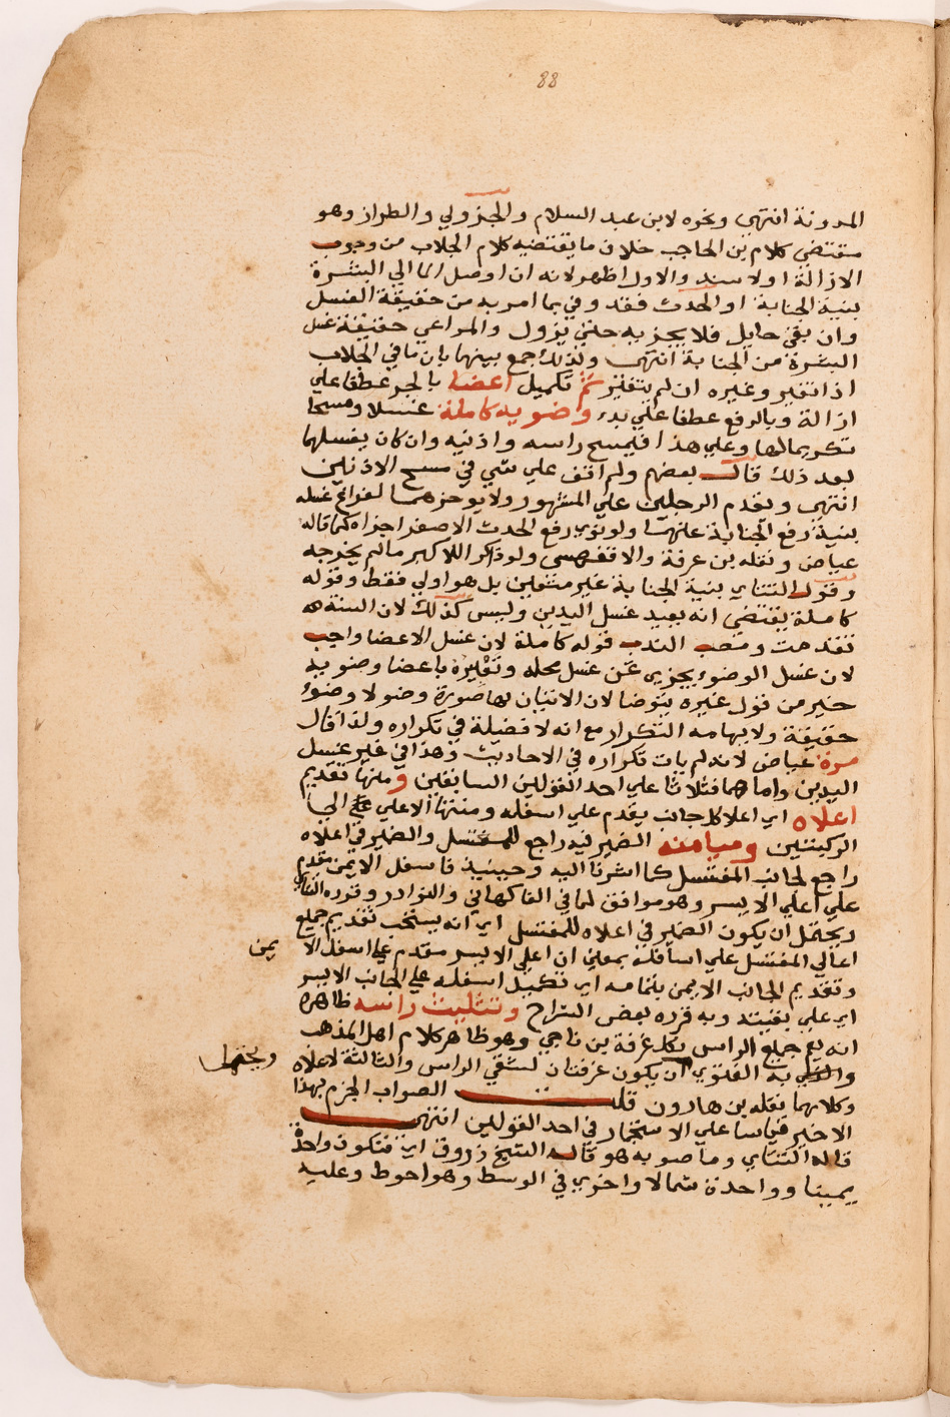 88
المدونة انتهى ونحوه لابن عبد السلام والجزولي والطراز وهو
مقتضى كلام بن الحاجب خلاف ما يقتضيه كلام الجلاب من وجوب
الازالة اولا سند والاول اظهر لانه ان اوصل الما الي البشرة
بنية الجنابة او الحدث فقد وفي بما امر به من حقيقة الغسل
وان بقى حايل فلا يجزيه حتى يزول والمراعي حقيقة غسل
البشرة من الجنابة انتهى ولذلك جمع بينهما بان ما في الجلاب
اذا تغير وغيره ان لم يتغير ثم تكميل اعضا بالجر عطفا علي
ازالة وبالرفع عطفا علي بدء وضويه كاملة غسلا ومسحا
تكريما لها وعلي هذا فيمسح راسه واذنيه وان كان يغسلهما
بعد ذلك قال بعضهم ولم اقف علي شي في مسح الاذنين
انتهى ويقدم الرجلين علي المشهور ولا يوخرهما لفراغ غسله
بنية رفع الجنابة عنهما ولو نوى رفع الحدث الاصغر اجزاه كما قاله
عياض ونقله بن عرفة والاقفهسي ولو ذاكرا للاكبر ما لم يخرجه
وقول التتاي بنية الجنابة غير متعين بل هو اولي فقط وقوله
كاملة يقتضى انه يعيد غسل اليدين وليس كذلك لان السنة
تقدمت ومصب الندب قوله كاملة لان غسل الاعضا واجب
لان غسل الوضوء يجزي عن غسل محله وتعبيره باعضا وضويه
خير من قول غيره يتوضا لان الاتيان بها صورة وضو لا وضوء
حقيقة ولايهامه التكرار مع انه لا فضيلة في تكراره ولذا قال
مرة عياض لانه لم يات تكراره في الاحاديث وهذا في غير غسل
اليدين واما هما فثلاثا علي احد القولين السابقين ومنها تقديم
اعلاه اي اعلا كل جانب يقدم علي اسفله ومنتها الاعلي الي
الركبتين وميامنه الضمير فيه راجع للمغتسل والضمير في اعلاه
راجع لجانب المغتسل كما اشرنا اليه وحينيذ فاسفل الايمن مقدم
علي اعلي الايسر وهو موافق لما في الفاكهاني والنوادر وقرره
ويحتمل ان يكون الضمير في اعلاه للمغتسل اي انه يستحب تقديم جميع
اعالي المغتسل علي اسافله بمعني ان اعلي الايسر مقدم علي اسفل الا
يمن
وتقديم الجانب الايمن بتمامه اي تكميل اسفله علي الجانب الايسر
اي علي بقيته وبه قرره بعض الشراح وتثليث راسه ظاهره
انه يعم جميع الراس بكل غرفة بن ناجي وهو ظاهر كلام اهل المذهب
ويحتمل
به الفتوي ان يكون غرفتان لشقي الراس والثالثة لاعلاه
وكلاهما نقله بن هارون قلت الصواب الجزم بهذا
الاخير قياسا علي الاستجمار في احد القولين انتهى
قاله التتاي وما صوبه هو قاله الشيخ زروق اي فتكون واحدة
يمينا وواحدة شمالا واخرى في الوسط وهو احوط وعليه